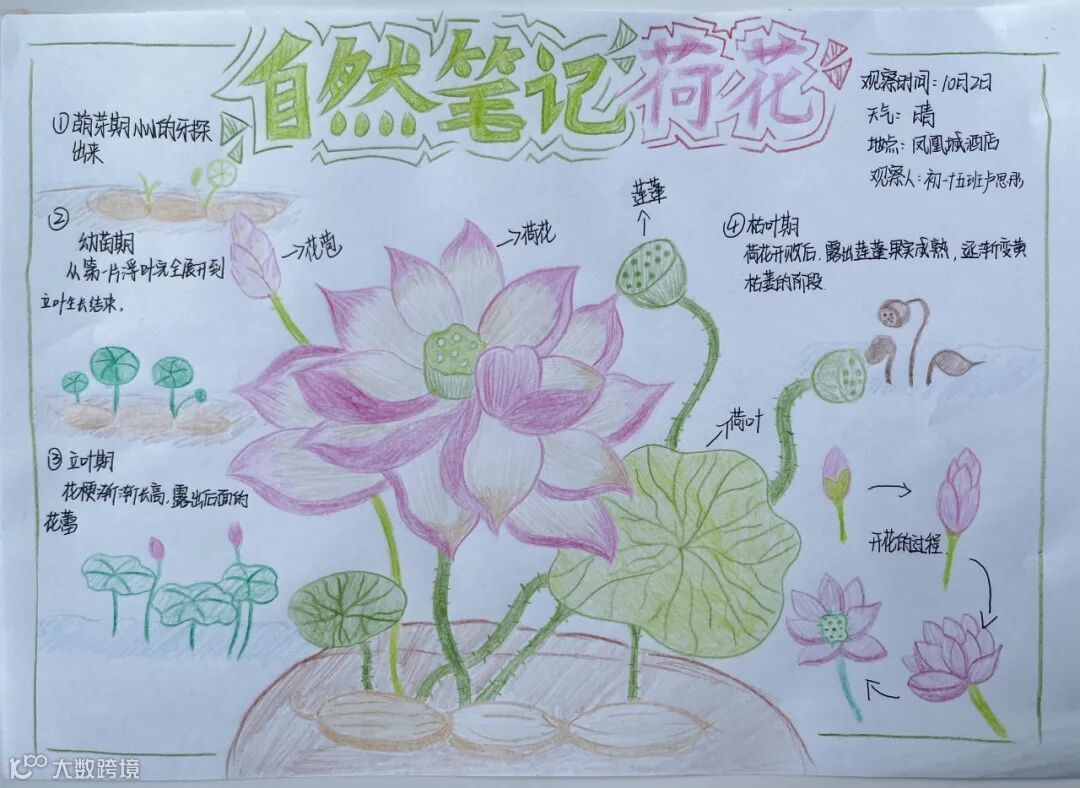 自然笔记荷花
观察时间：10月2日
天气：晴
地点：凤凰城酒店
观察人：初一十五班卢思彤
①萌芽期小小的牙探
出来
②
幼苗期
从第一片浮叶完全展开到
立叶生长结束。
③立叶期
花梗渐渐长高,露出后面的
花蕾
花苞
荷花
莲蓬
荷叶
④枯叶期
荷花开败后,露出莲蓬果实成熟,逐渐变黄
枯萎的阶段
开花的过程
大数跨境